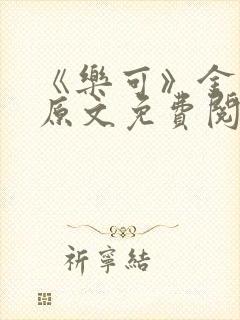 《樂可》金
原文免費閱
祈寧結